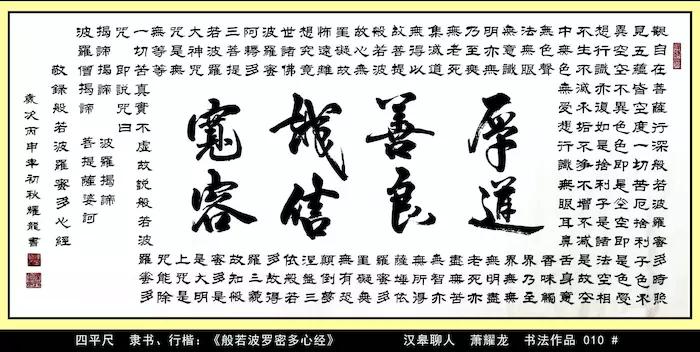 觀自在菩薩行深般若波羅蜜多時照
見五蘊皆空度一切苦厄捨利子色不
異空空不異色色即是空空即是色受
想行識亦復如是捨利子是諸法空相
不生不滅不垢不淨不增不減是故空
中無色無受想行識無眼耳鼻舌身意
無色聲香味觸
法無眼界乃至
無意識界無無
明亦無無明盡
乃至無老死亦
無老死盡無苦
集滅道無智亦
無得以無所得
故菩提薩埵依
般若波羅蜜多
故心無罣礙無
罣礙故無有恐
怖遠離顛倒夢
想究竟涅槃三
世諸佛依般若
波羅蜜多故得
阿耨多羅三藐
三菩提故知般
若波羅蜜多是
大神咒是大明
咒是無上咒是
無等等咒能除
一切苦真實不虛故說般若波羅蜜多
咒即說咒曰
揭諦揭諦 波羅揭諦
波羅僧揭諦 菩提薩婆訶
敬錄般若波羅蜜多心經
歲次丙申年初秋耀龍書
厚道
善良
誠信
寬容
四平尺 隶书、行楷：《般若波罗密多心经》 汉皋聊人 萧耀龙 书法作品 010 #